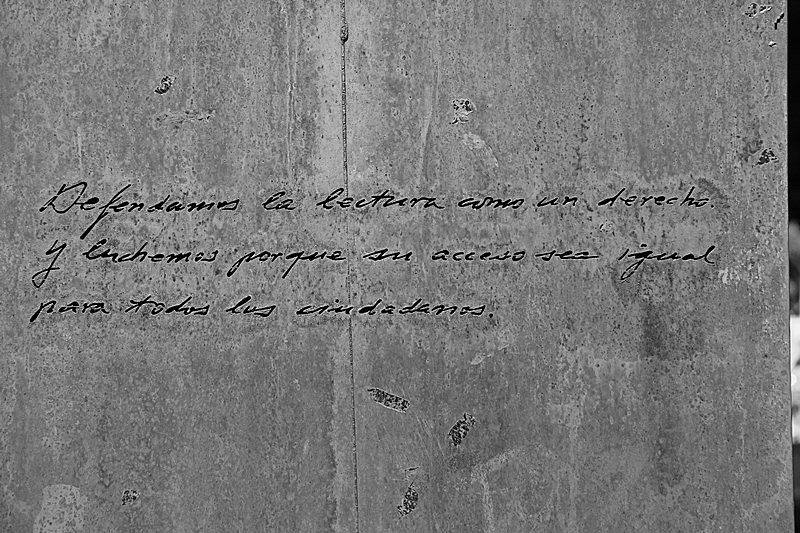 Defendamos la lectura como un derecho.
Y luchemos porque su acceso sea igual
para todos los ciudadanos.